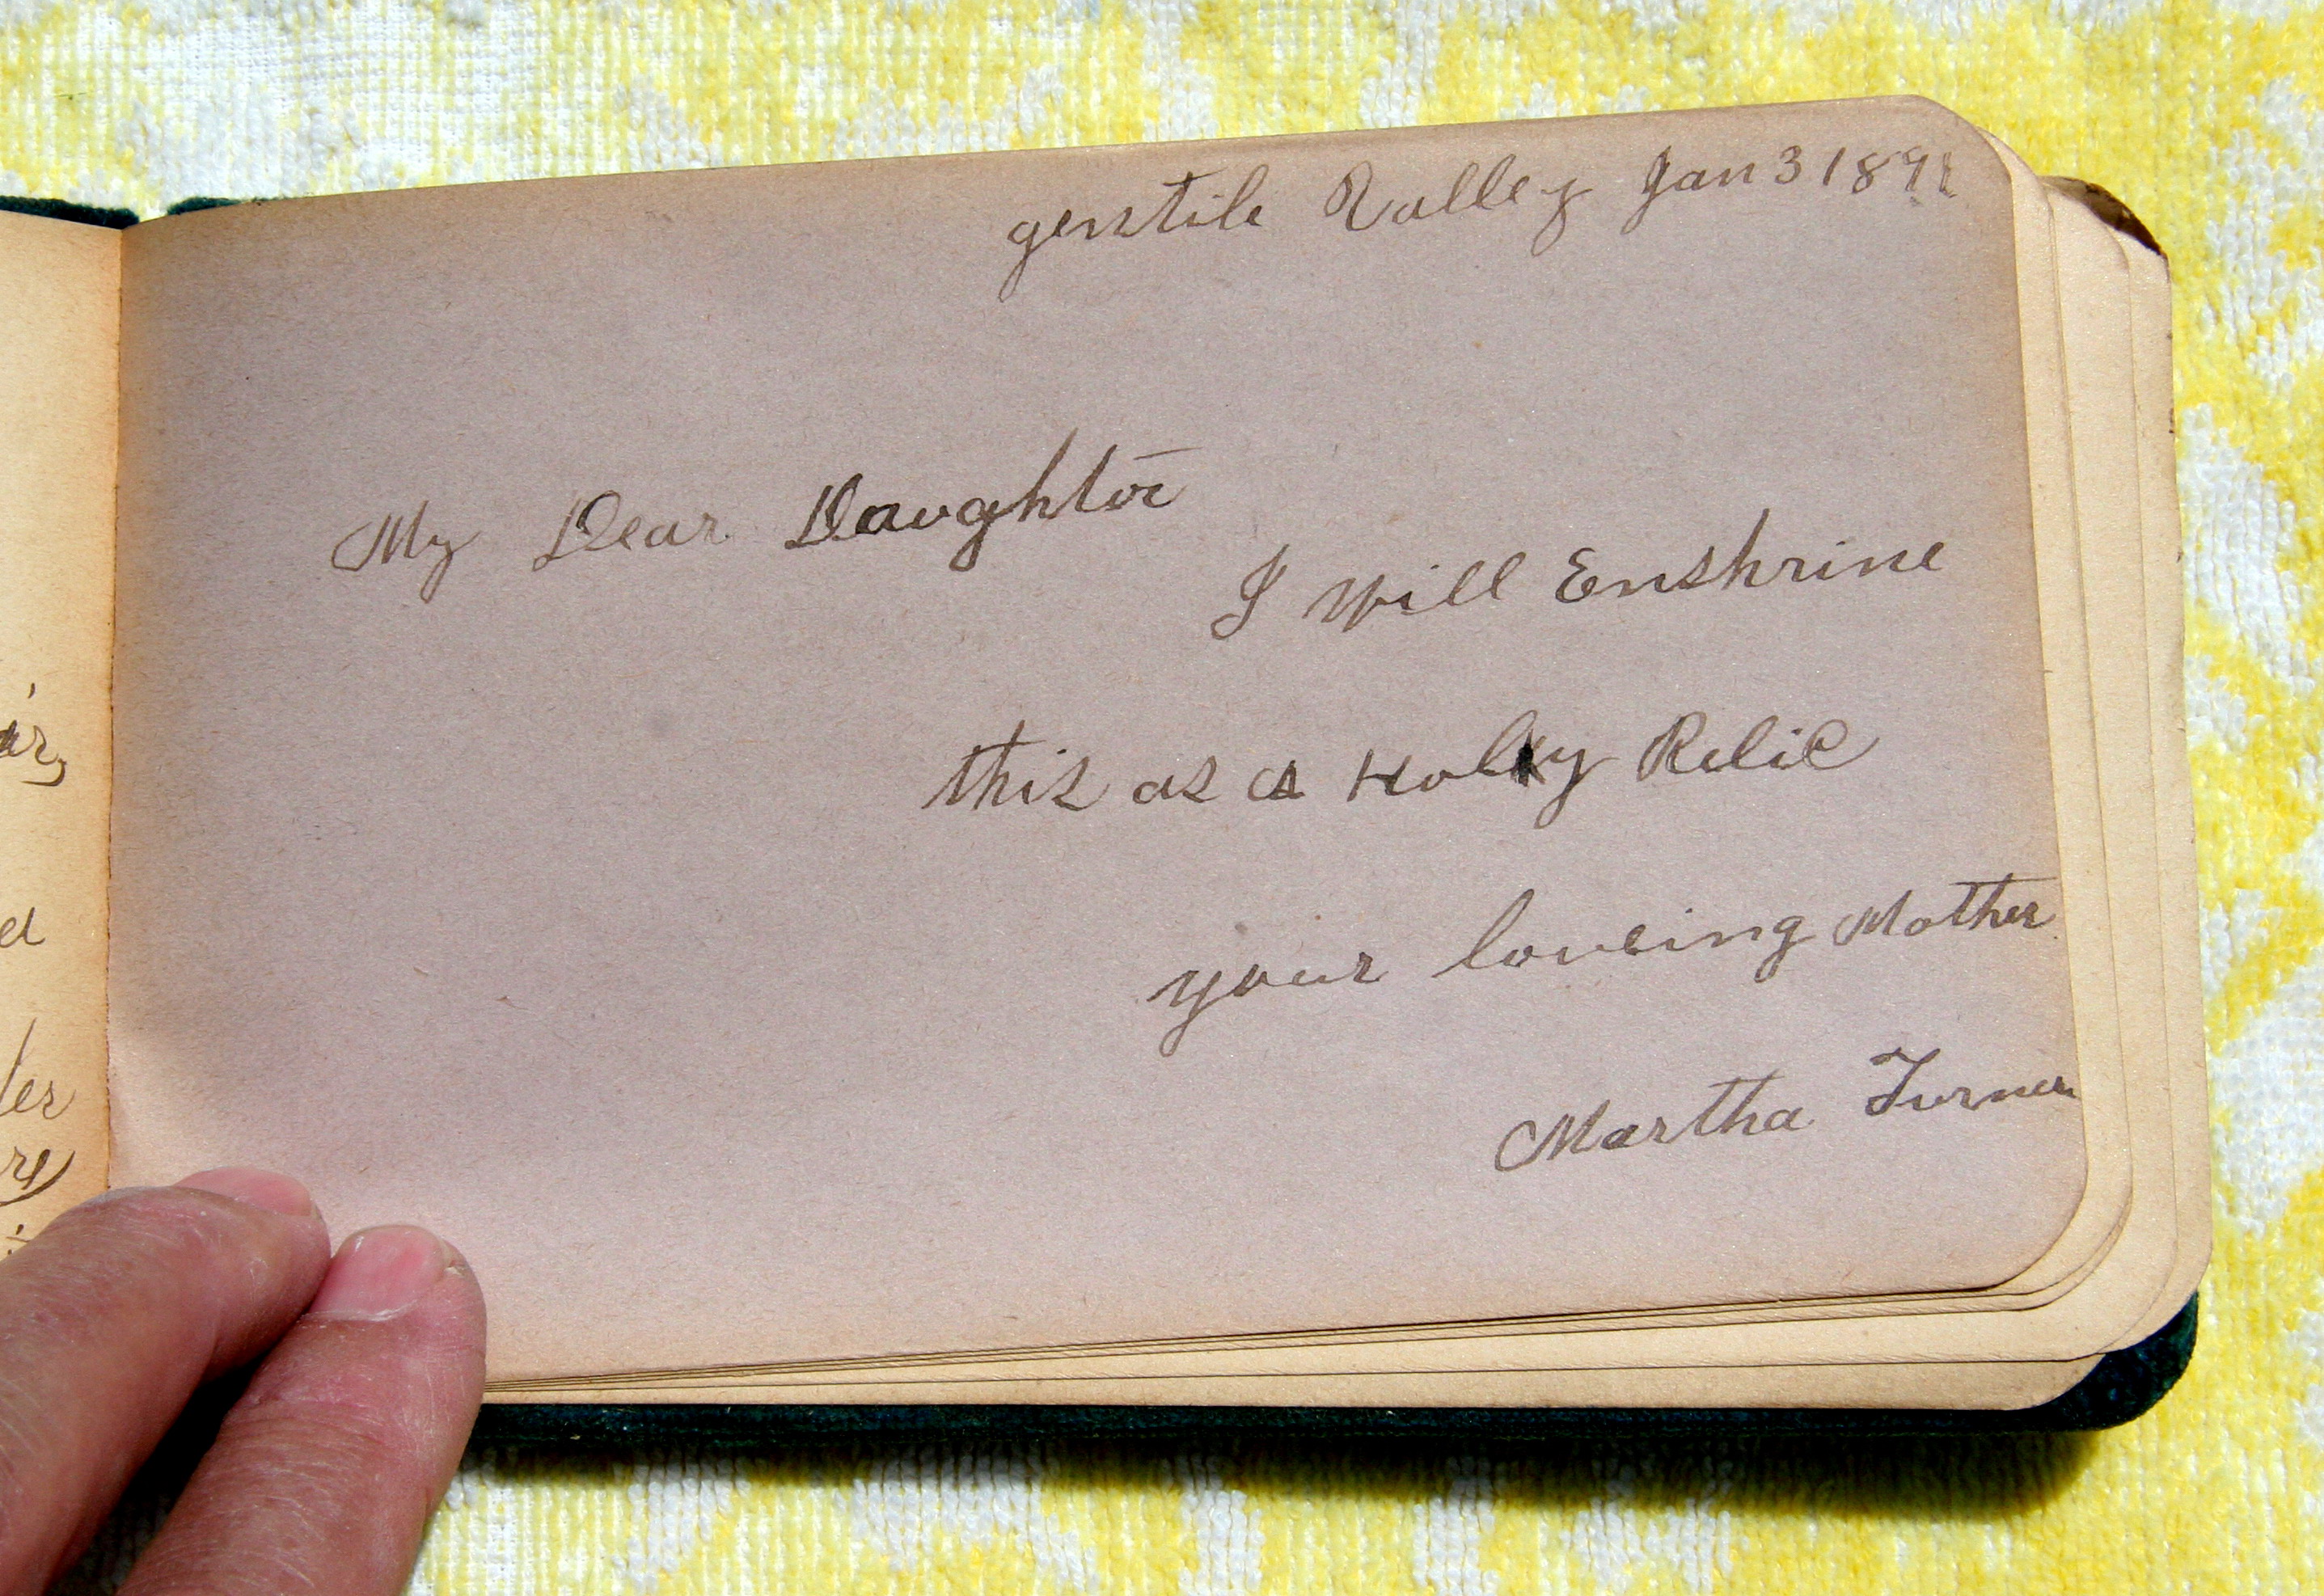 gentile Valley Jan 3 189
My Dear Daughter
I Will Enshrine
this as a Holy Relic
your loveing Mother
Martha Turner